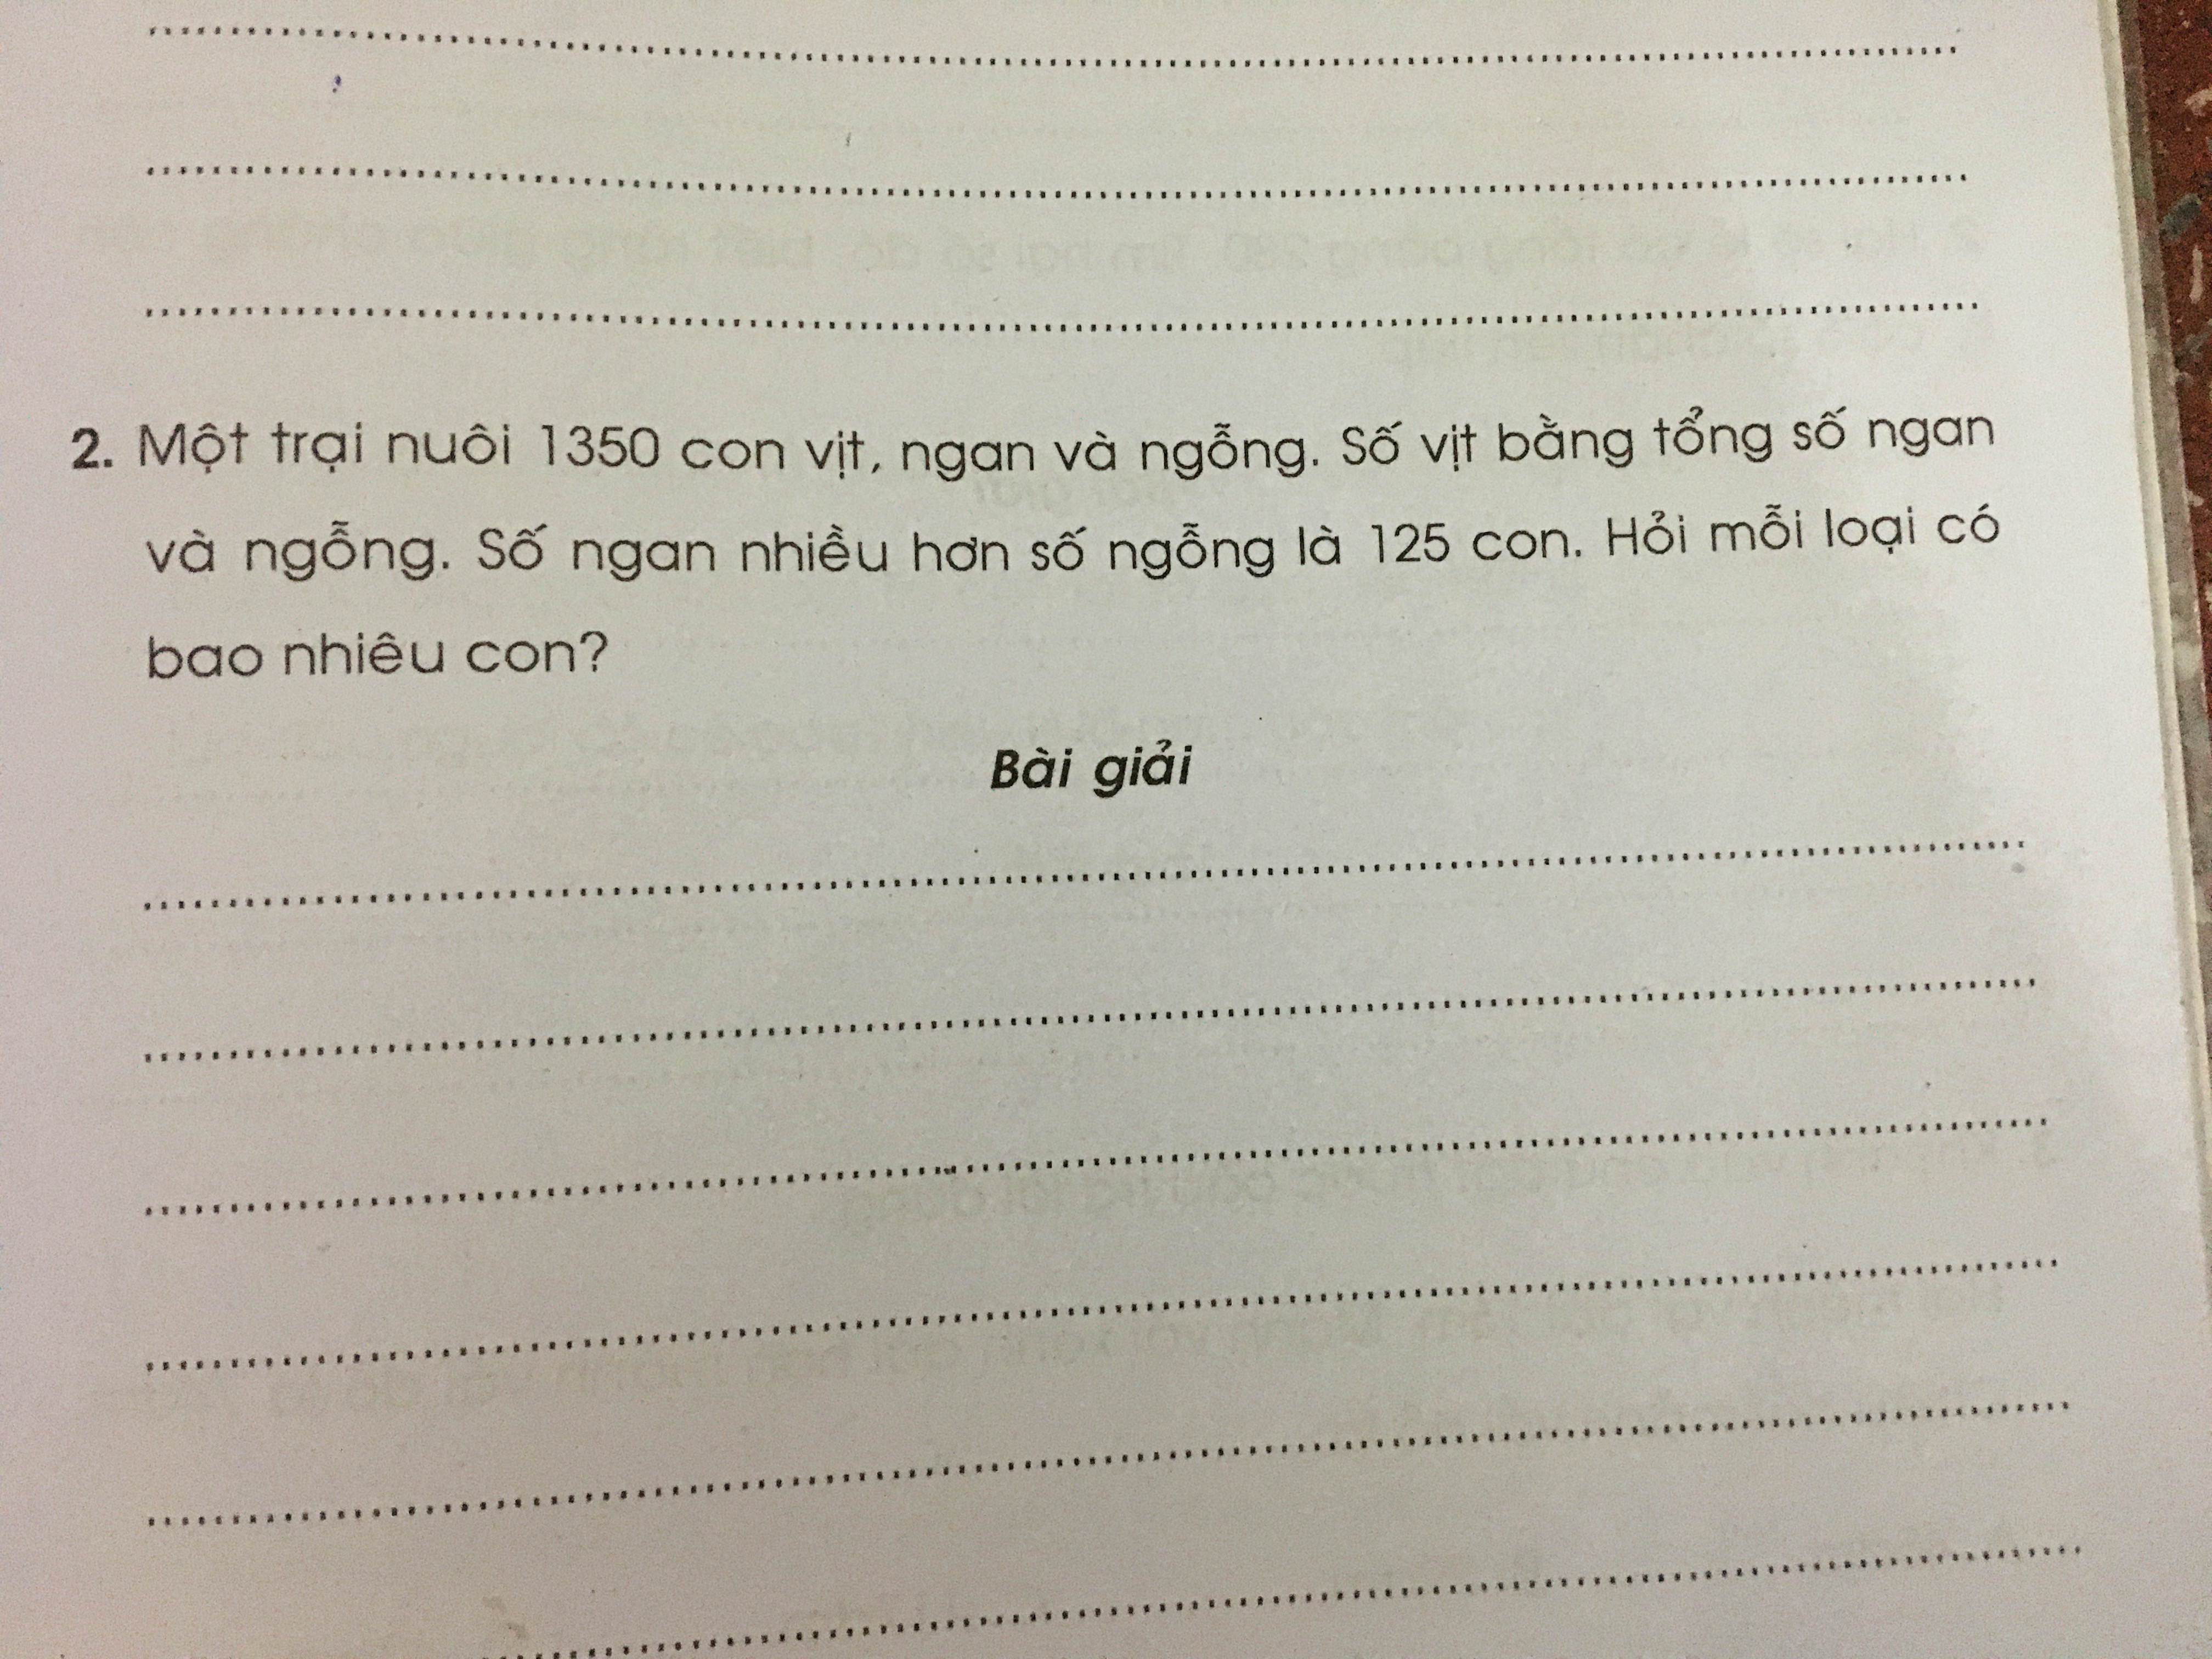 2. Một trại nuôi 1350 con vịt, ngan và ngỗng. Số vịt bằng tổng số ngan
và ngỗng. Số ngan nhiều hơn số ngỗng là 125 con. Hỏi mỗi loại có
bao nhiêu con?
Bài giải